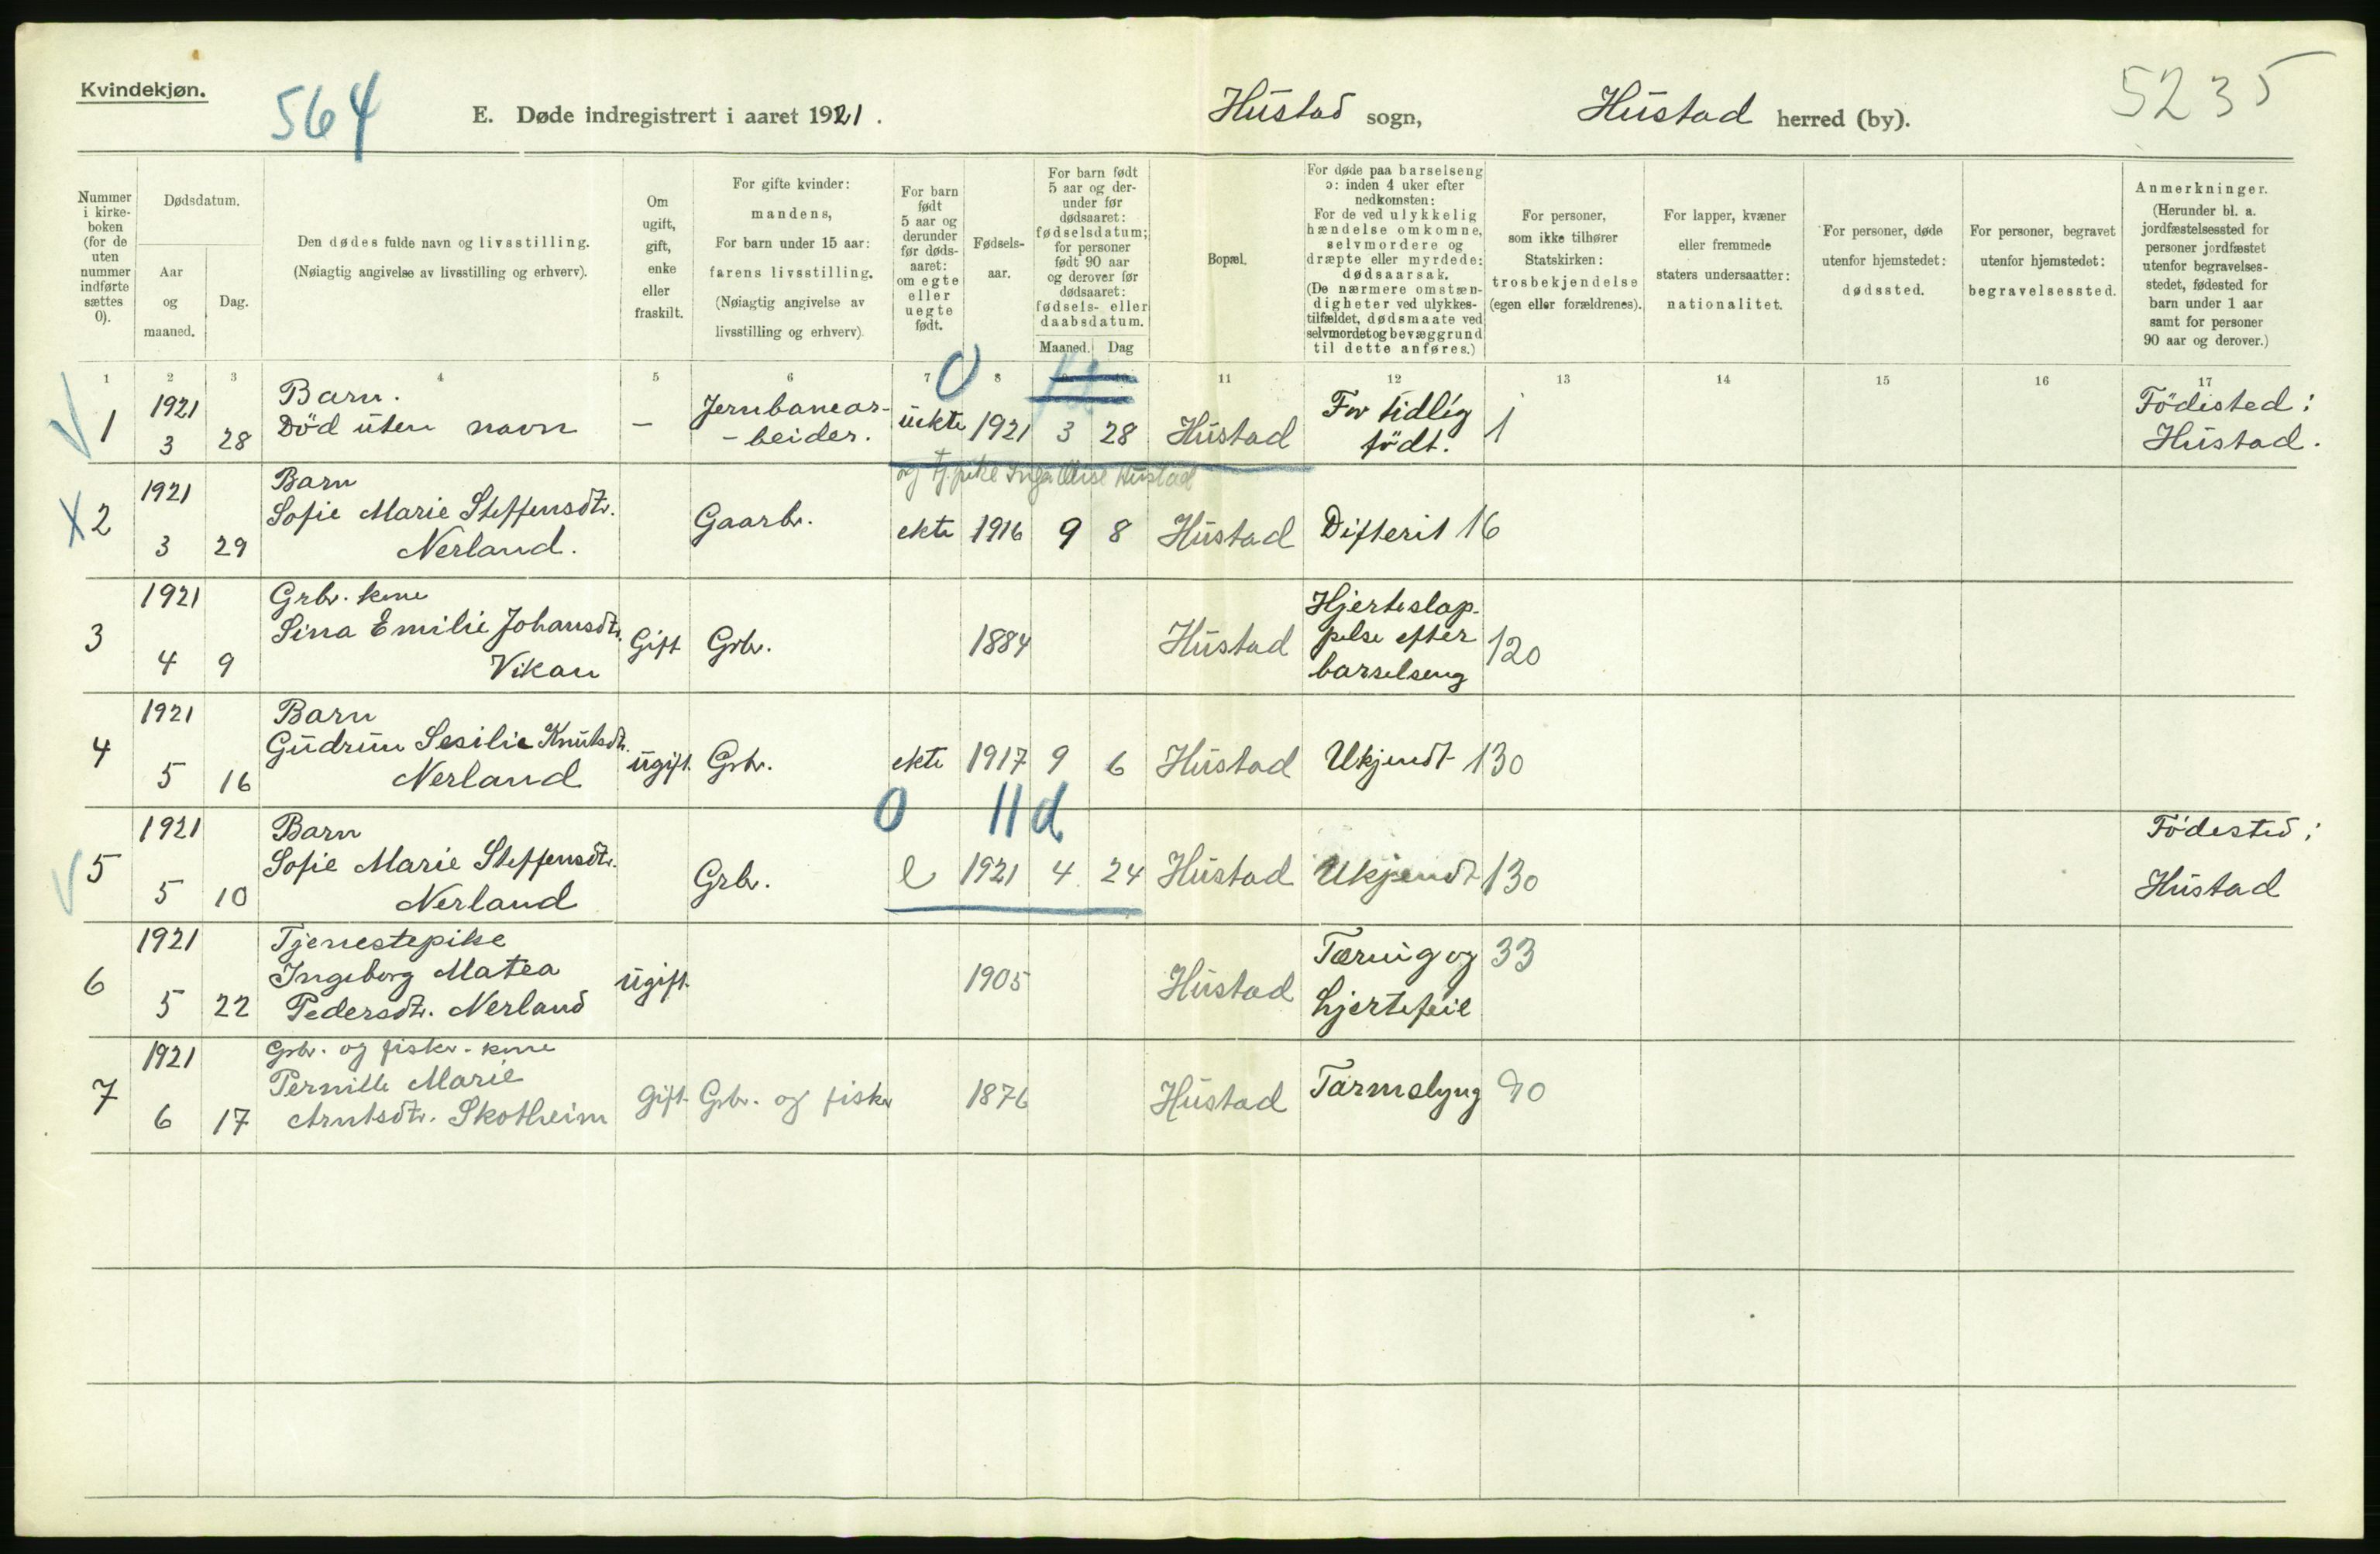 Kvindekjøn.
564
E. Døde indregistrert i aaret 1921.
Hustad sogn,
Hustad herred (by).
5235
Nummer i kirke-boken (for de uten nummer indførte sættes 0).
Dødsdatum.
Aar og maaned.
Dag.
Den dødes fulde navn og livsstilling.
(Nøiagtig angivelse av livsstilling og erhverv).
Om ugift, gift, enke eller fraskilt.
For gifte kvinder: mandens,
For barn under 15 aar: farens livsstilling.
(Nøiagtig angivelse av livsstilling og erhverv).
For barn født 5 aar og derunder før døds-aaret: om egte eller uegte født.
Fødsels-aar.
For barn født 5 aar og der-under før dødsaaret: fødselsdatum; for personer født 90 aar og derover før dødsaaret: fødsels- eller daabsdatum.
Maaned. Dag
Bopæl.
For døde paa barselseng ɔ: inden 4 uker efter nedkomsten:
For de ved ulykkelig hændelse omkomne, selvmordere og dræpte eller myrdede: dødsaarsak.
(De nærmere omstæn-digheter ved ulykkes-tilfældet, dødsmaate ved selvmordet og bevæggrund til dette anføres.)
For personer, som ikke tilhører Statskirken: trosbekjendelse (egen eller forældrenes).
For lapper, kvæner eller fremmede staters undersaatter: nationalitet.
For personer, døde utenfor hjemstedet: dødssted.
For personer, begravet utenfor hjemstedet: begravelsessted.
Anmerkninger.
(Herunder bl. a. jordfæstelsessted for personer jordfæstet utenfor begravelses-stedet, fødested for barn under 1 aar samt for personer 90 aar og derover.)
1 2 3 4 5 6 7 8 11 12 13 14 15 16 17
0
1 1921 3 28 Barn.
Död uten navn - Jernbanear-
-beider. uekte 1921 3 28 Hustad For tidlig
födt. 1 Födested:
Hustad.
og tj.pike Inga Elise Hustad
X 2 1921 3 29 Barn
Sofie Marie Steffensdtr.
Nerland. Gaarbr. ekte 1916 9 8 Hustad Difterit 16
3 1921 4 9 Grbr. kone
Sina Emilie Johansdtr.
Vikan Gift Grbr. 1884 Hustad Hjerteslap-
pelse efter
barselseng 120
4 1921 5 16 Barn
Gudrun Sesilie Knutsdtr.
Nerland ugift. Grbr. ekte 1917 9 6 Hustad Ukjendt 130
0 11 d
5 1921 5 10 Barn
Sofie Marie Steffensdtr.
Nerland Grbr. e 1921 4 24 Hustad Ukjendt 130 Födested:
Hustad
6 1921 5 22 Tjenestepike
Ingeborg Matea
Pedersdtr. Nerland ugift. 1905 Hustad Tæring og
hjertefeil 33
7 1921 6 17 Grbr. og fisker-kone
Pernille Marie
Arntsdtr. Skotheim gift Grbr. og fisker 1876 Hustad Tarmslyng 90